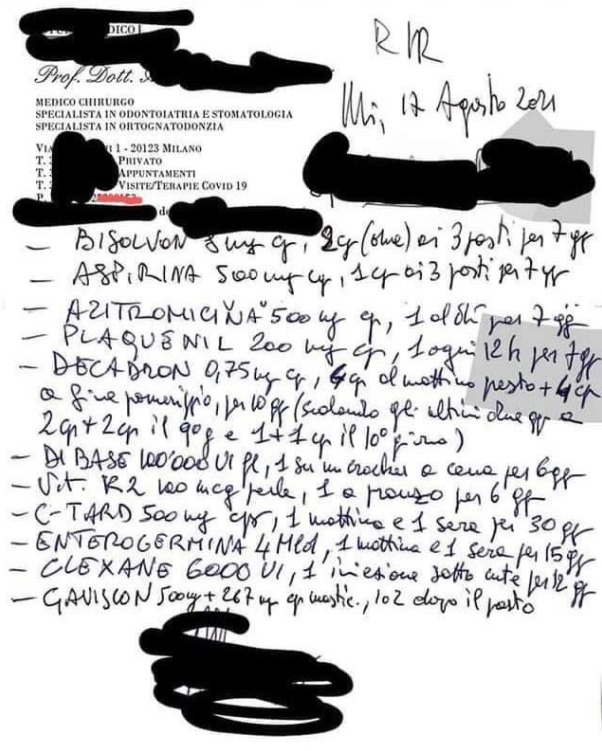 DICO
R/R
Prof. Dott.
Mi, 17 Agosto 2021
MEDICO CHIRURGO
SPECIALISTA IN ODONTOIATRIA E STOMATOLOGIA
SPECIALISTA IN ORTOGNATODONZIA
VIA 1 - 20123 MILANO
T. PRIVATO
T. APPUNTAMENTI
T. VISITE/TERAPIE COVID 19
P.
- BISOLVON 8 mg cp, 2 cp (due) ai 3 pasti per 7 gg
- ASPIRINA 500 mg cp, 1 cp ai 3 pasti per 7 gg
- AZITROMICINA 500 mg cp, 1 al dì per 7 gg
- PLAQUENIL 200 mg cp, 1 ogni 12 h per 7 gg
- DECADRON 0,75 mg cp, 4 cp al mattino presto + 4 cp
a fine pomeriggio, per 10 gg (scalando gli ultimi due gg a
2 cp + 2 cp il 9° g e 1 + 1 cp il 10° giorno)
- DIBASE 100'000 UI fl, 1 su un crocher a cena per 6 gg
- Vit. K2 100 mcg perle, 1 a pranzo per 6 gg
- C-TARD 500 mg cps, 1 mattina e 1 sera per 30 gg
- ENTEROGERMINA 4 Mld, 1 mattina e 1 sera per 15 gg
- CLEXANE 6000 UI, 1 iniezione sotto cute per 12 gg
- GAVISCON 500 mg + 267 mg cp mastic., 1 o 2 dopo il pasto